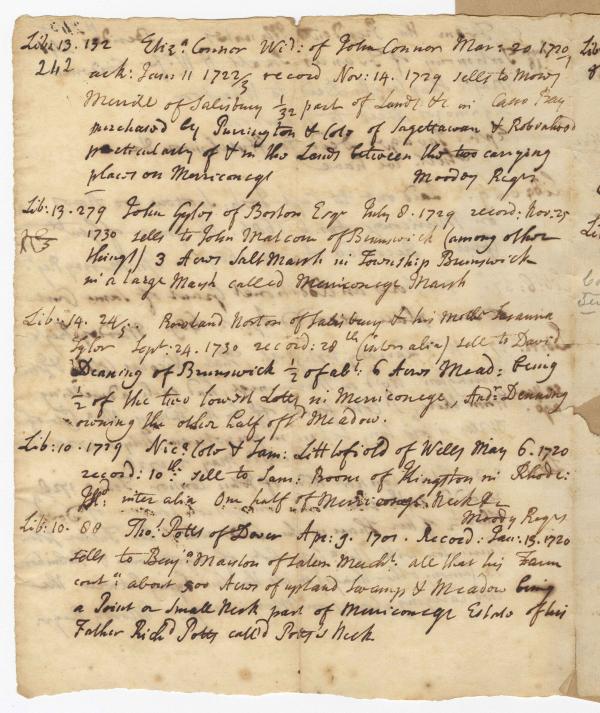 Lib: 13. 132 Eliz.a Connor Wid: of John Connor Mar: 20. 1720/1
242 ack: Jan: 11 1722/3 record Nov: 14. 1729 sells to Moses
Merrile of Salisbury 1/32 part of Lands &c in Casco Bay
purchased by Purrington & Cole of Sagettawan & Robinhood
particularly of & in the Lands between the two carrying
places on Merriconege Moody Regr
Lib: 13. 279 John Gyles of Boston Esqr July 8. 1729 record: Nov: 25
1730 sells to John Malcom of Brunswick (among other
things) 3 Acres Salt Marsh in Township Brunswick
in a large Marsh called Merriconege Marsh
Lib: 14. 245. Rowland Noston of Salisbury & his Mothr Susanna
Tylor Sept: 24. 1730 record: 28th (inter alia) sell to David
Denning of Brunswick 1/2 of abt: 6 Acres Mead: being
1/2 of the two lowest Lotts in Merriconege, Andr: Denning
owning the other half of sd Meadow.
Lib: 10. 1729 Nics Cole & Sam: Littlefield of Wells May 6. 1720
record: 10th: sell to Sam: Boone of Kingston in Rhode:
Isld: inter alia One half of Merriconege Neck &c
Moody Regr
Lib: 10. 88 Tho.s Potts of Dover Apr: 9. 1701. Record: Jan: 13. 1720
sells to Benj.a Marston of Salem Mercht: all that his Farm
cont.g about 500 Acres of upland Swamp & Meadow being
a Point or Small Neck part of Merriconege Estate of his
Father Richd Potts called Potts's Neck